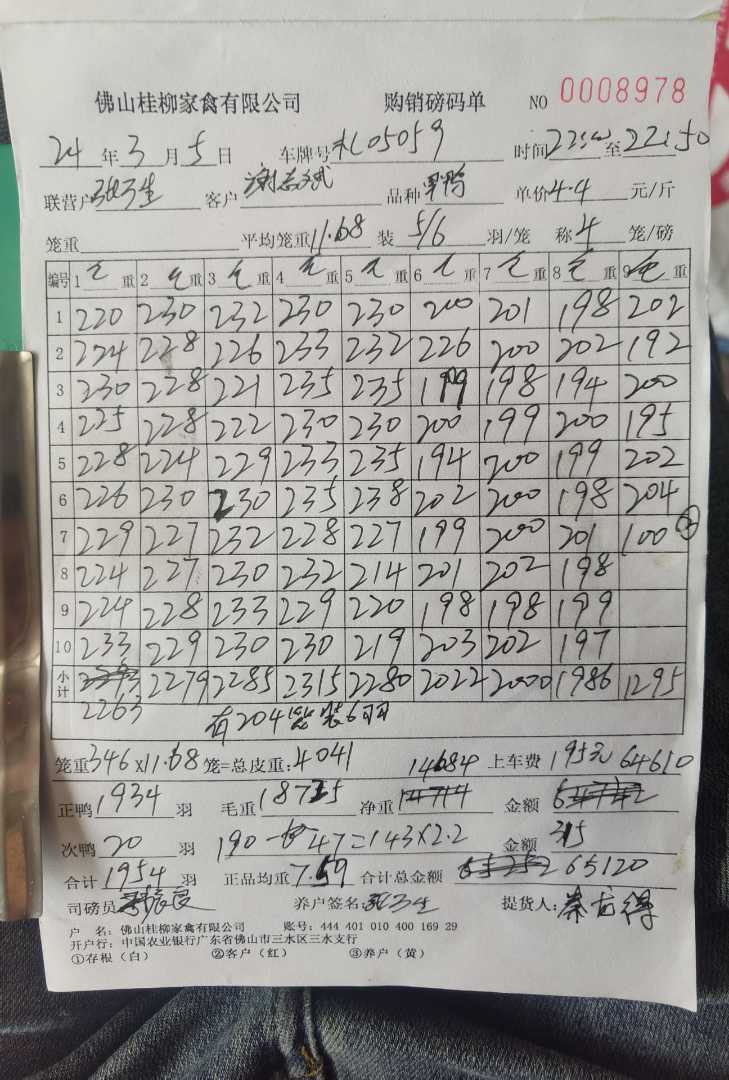 佛山桂柳家禽有限公司 购销磅码单 NO 0008978
24年3月5日 车牌号 05059 时间 至22:50
联营户 客户 品种 单价4.4元/斤
笼重 平均笼重11.68 装5/6羽/笼 称4笼/磅
编号 1 毛重 2 毛重 3 毛重 4 毛重 5 毛重 6 毛重 7 毛重 8 毛重 9 毛重
1 220 230 232 230 230 200 201 198 202
2 224 228 226 233 232 226 200 202 192
3 230 228 221 235 235 199 198 194 200
4 225 228 222 230 230 200 199 200 195
5 228 224 229 233 235 194 200 199 202
6 226 230 230 235 238 202 200 198 204
7 229 227 232 228 227 199 200 201 100 ②
8 224 227 230 232 214 201 202 198
9 224 228 233 229 220 198 198 199
10 233 229 230 230 219 203 202 197
小计 2279 2285 2315 2280 2022 2000 1986 1295
2263 有204笼装6羽
笼重346×11.68笼=总皮重:4041 14684 上车费195元 64610
正鸭1934羽 毛重18725 净重14714 金额
次鸭20羽 190 47=143×2.2 金额315
合计1954羽 正品均重7.59 合计总金额 65120
司磅员 养户签名: 提货人:
户 名:佛山桂柳家禽有限公司 账号:444 401 010 400 169 29
开户行:中国农业银行广东省佛山市三水区三水支行
①存根(白) ②客户(红) ③养户(黄)